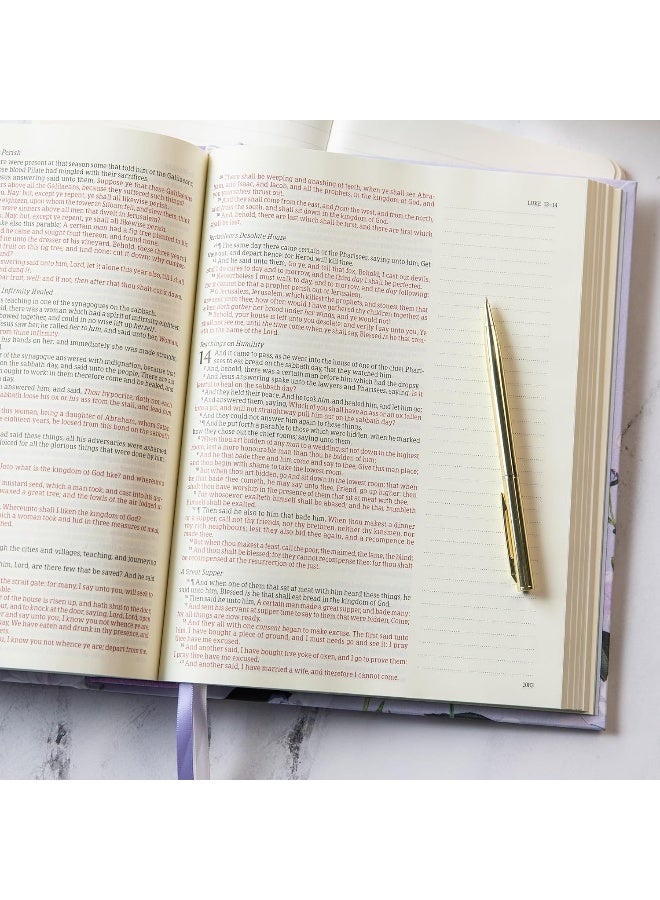 Perish
There were present at that season some that told him of the Galilaeans,
whose blood Pilate had mingled with their sacrifices.
Jesus answering said unto them, Suppose ye that these Galilaeans
sinners above all the Galilaeans, because they suffered such things?
Nay: but, except ye repent, ye shall all likewise perish.
eighteen, upon whom the tower in Siloam fell, and slew them, think
were sinners above all men that dwelt in Jerusalem?
Nay: but, except ye repent, ye shall all likewise perish.
also this parable; A certain man had a fig tree planted in his
he came and sought fruit thereon, and found none.
he unto the dresser of his vineyard, Behold, these three years
fruit on this fig tree, and find none: cut it down; why cumber-
answering said unto him, Lord, let it alone this year also, till I shall
fruit, well: and if not, then after that thou shalt cut it down.
Infirmity Healed
teaching in one of the synagogues on the sabbath.
there was a woman which had a spirit of infirmity eighteen
bowed together, and could in no wise lift up herself.
Jesus saw her, he called her to him, and said unto her, Woman,
from thine infirmity.
his hands on her: and immediately she was made straight,
of the synagogue answered with indignation, because that
on the sabbath day, and said unto the people, There are six
ought to work: in them therefore come and be healed, and
day.
answered him, and said, Thou hypocrite, doth not each
sabbath loose his ox or his ass from the stall, and lead him
this woman, being a daughter of Abraham, whom Satan
eighteen years, be loosed from this bond on the sabbath
had said these things, all his adversaries were ashamed:
rejoiced for all the glorious things that were done by him.
Unto what is the kingdom of God like? and whereunto
mustard seed, which a man took, and cast into his gar-
waxed a great tree; and the fowls of the air lodged in
Whereunto shall I liken the kingdom of God?
which a woman took and hid in three measures of meal,
through the cities and villages, teaching, and journeying
him, Lord, are there few that be saved? And he said
the strait gate: for many, I say unto you, will seek to
able.
of the house is risen up, and hath shut to the door,
out, and to knock at the door, saying, Lord, Lord, open
and say unto you, I know you not whence ye are:
say, We have eaten and drunk in thy presence, and
streets.
you, I know you not whence ye are; depart from me,
LUKE 13–14
28 There shall be weeping and gnashing of teeth, when ye shall see Abra-
ham, and Isaac, and Jacob, and all the prophets, in the kingdom of God, and
you yourselves thrust out.
29 And they shall come from the east, and from the west, and from the north,
and from the south, and shall sit down in the kingdom of God.
30 And, behold, there are last which shall be first, and there are first which
shall be last.
Jerusalem's Desolate House
31 ¶ The same day there came certain of the Pharisees, saying unto him, Get
thee out, and depart hence: for Herod will kill thee.
32 And he said unto them, Go ye, and tell that fox, Behold, I cast out devils,
and I do cures to day and to morrow, and the third day I shall be perfected.
33 Nevertheless I must walk to day, and to morrow, and the day following:
for it cannot be that a prophet perish out of Jerusalem.
34 O Jerusalem, Jerusalem, which killest the prophets, and stonest them that
are sent unto thee; how often would I have gathered thy children together, as
a hen doth gather her brood under her wings, and ye would not!
35 Behold, your house is left unto you desolate: and verily I say unto you, Ye
shall not see me, until the time come when ye shall say, Blessed is he that com-
eth in the name of the Lord.
Teachings on Humility
14 And it came to pass, as he went into the house of one of the chief Phari-
sees to eat bread on the sabbath day, that they watched him.
2 And, behold, there was a certain man before him which had the dropsy.
3 And Jesus answering spake unto the lawyers and Pharisees, saying, Is it
lawful to heal on the sabbath day?
4 And they held their peace. And he took him, and healed him, and let him go;
5 And answered them, saying, Which of you shall have an ass or an ox fallen
into a pit, and will not straightway pull him out on the sabbath day?
6 And they could not answer him again to these things.
7 ¶ And he put forth a parable to those which were bidden, when he marked
how they chose out the chief rooms; saying unto them,
8 When thou art bidden of any man to a wedding, sit not down in the highest
room; lest a more honourable man than thou be bidden of him;
9 And he that bade thee and him come and say to thee, Give this man place;
and thou begin with shame to take the lowest room.
10 But when thou art bidden, go and sit down in the lowest room; that when
he that bade thee cometh, he may say unto thee, Friend, go up higher: then
shalt thou have worship in the presence of them that sit at meat with thee.
11 For whosoever exalteth himself shall be abased; and he that humbleth
himself shall be exalted.
12 ¶ Then said he also to him that bade him, When thou makest a dinner
or a supper, call not thy friends, nor thy brethren, neither thy kinsmen, nor
thy rich neighbours; lest they also bid thee again, and a recompence be
made thee.
13 But when thou makest a feast, call the poor, the maimed, the lame, the blind:
14 And thou shalt be blessed; for they cannot recompense thee: for thou shalt
be recompensed at the resurrection of the just.
A Great Supper
15 ¶ And when one of them that sat at meat with him heard these things, he
said unto him, Blessed is he that shall eat bread in the kingdom of God.
16 Then said he unto him, A certain man made a great supper, and bade many:
17 And sent his servant at supper time to say to them that were bidden, Come;
for all things are now ready.
18 And they all with one consent began to make excuse. The first said unto
him, I have bought a piece of ground, and I must needs go and see it: I pray
thee have me excused.
19 And another said, I have bought five yoke of oxen, and I go to prove them:
I pray thee have me excused.
20 And another said, I have married a wife, and therefore I cannot come.